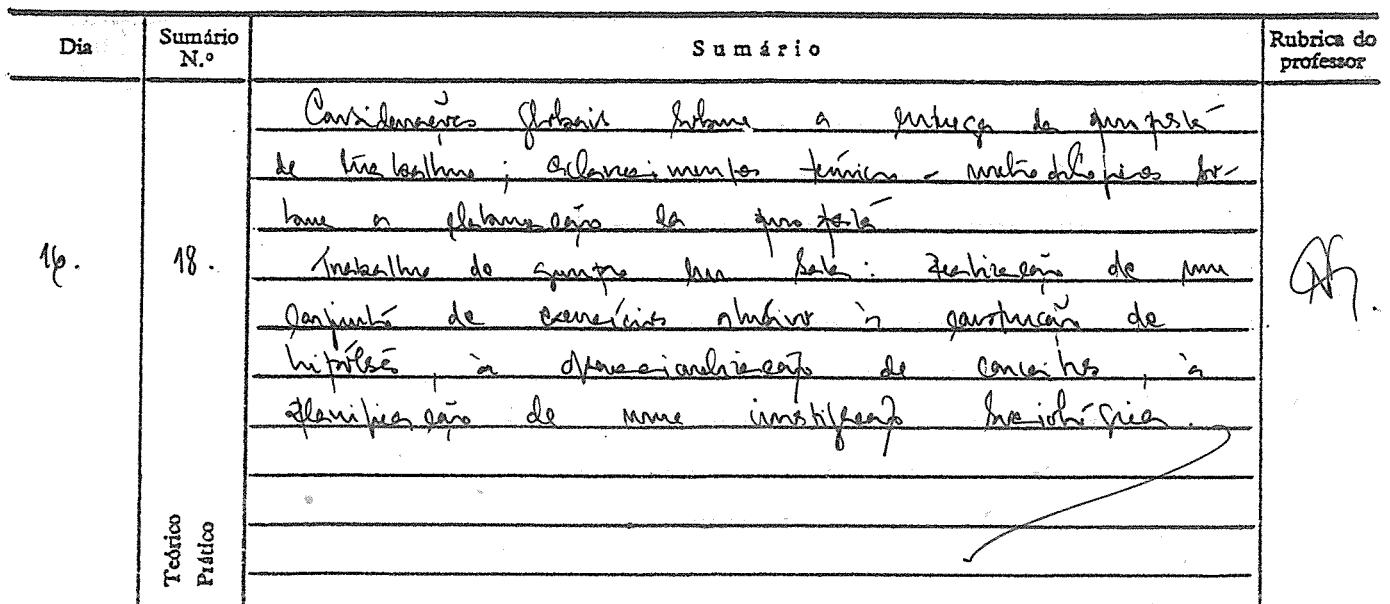 Dia
Sumário N.º
Sumário
Rubrica do professor
16.
18.
Teórico Prático
Considerações globais sobre a entrega da proposta
de trabalho; esclarecimentos técnico-metodológicos so-
bre a elaboração da proposta
Trabalho de grupo em sala: realização de um
conjunto de exercícios relativos à construção de
hipóteses, à operacionalização de conceitos, à
planificação de uma investigação sociológica.